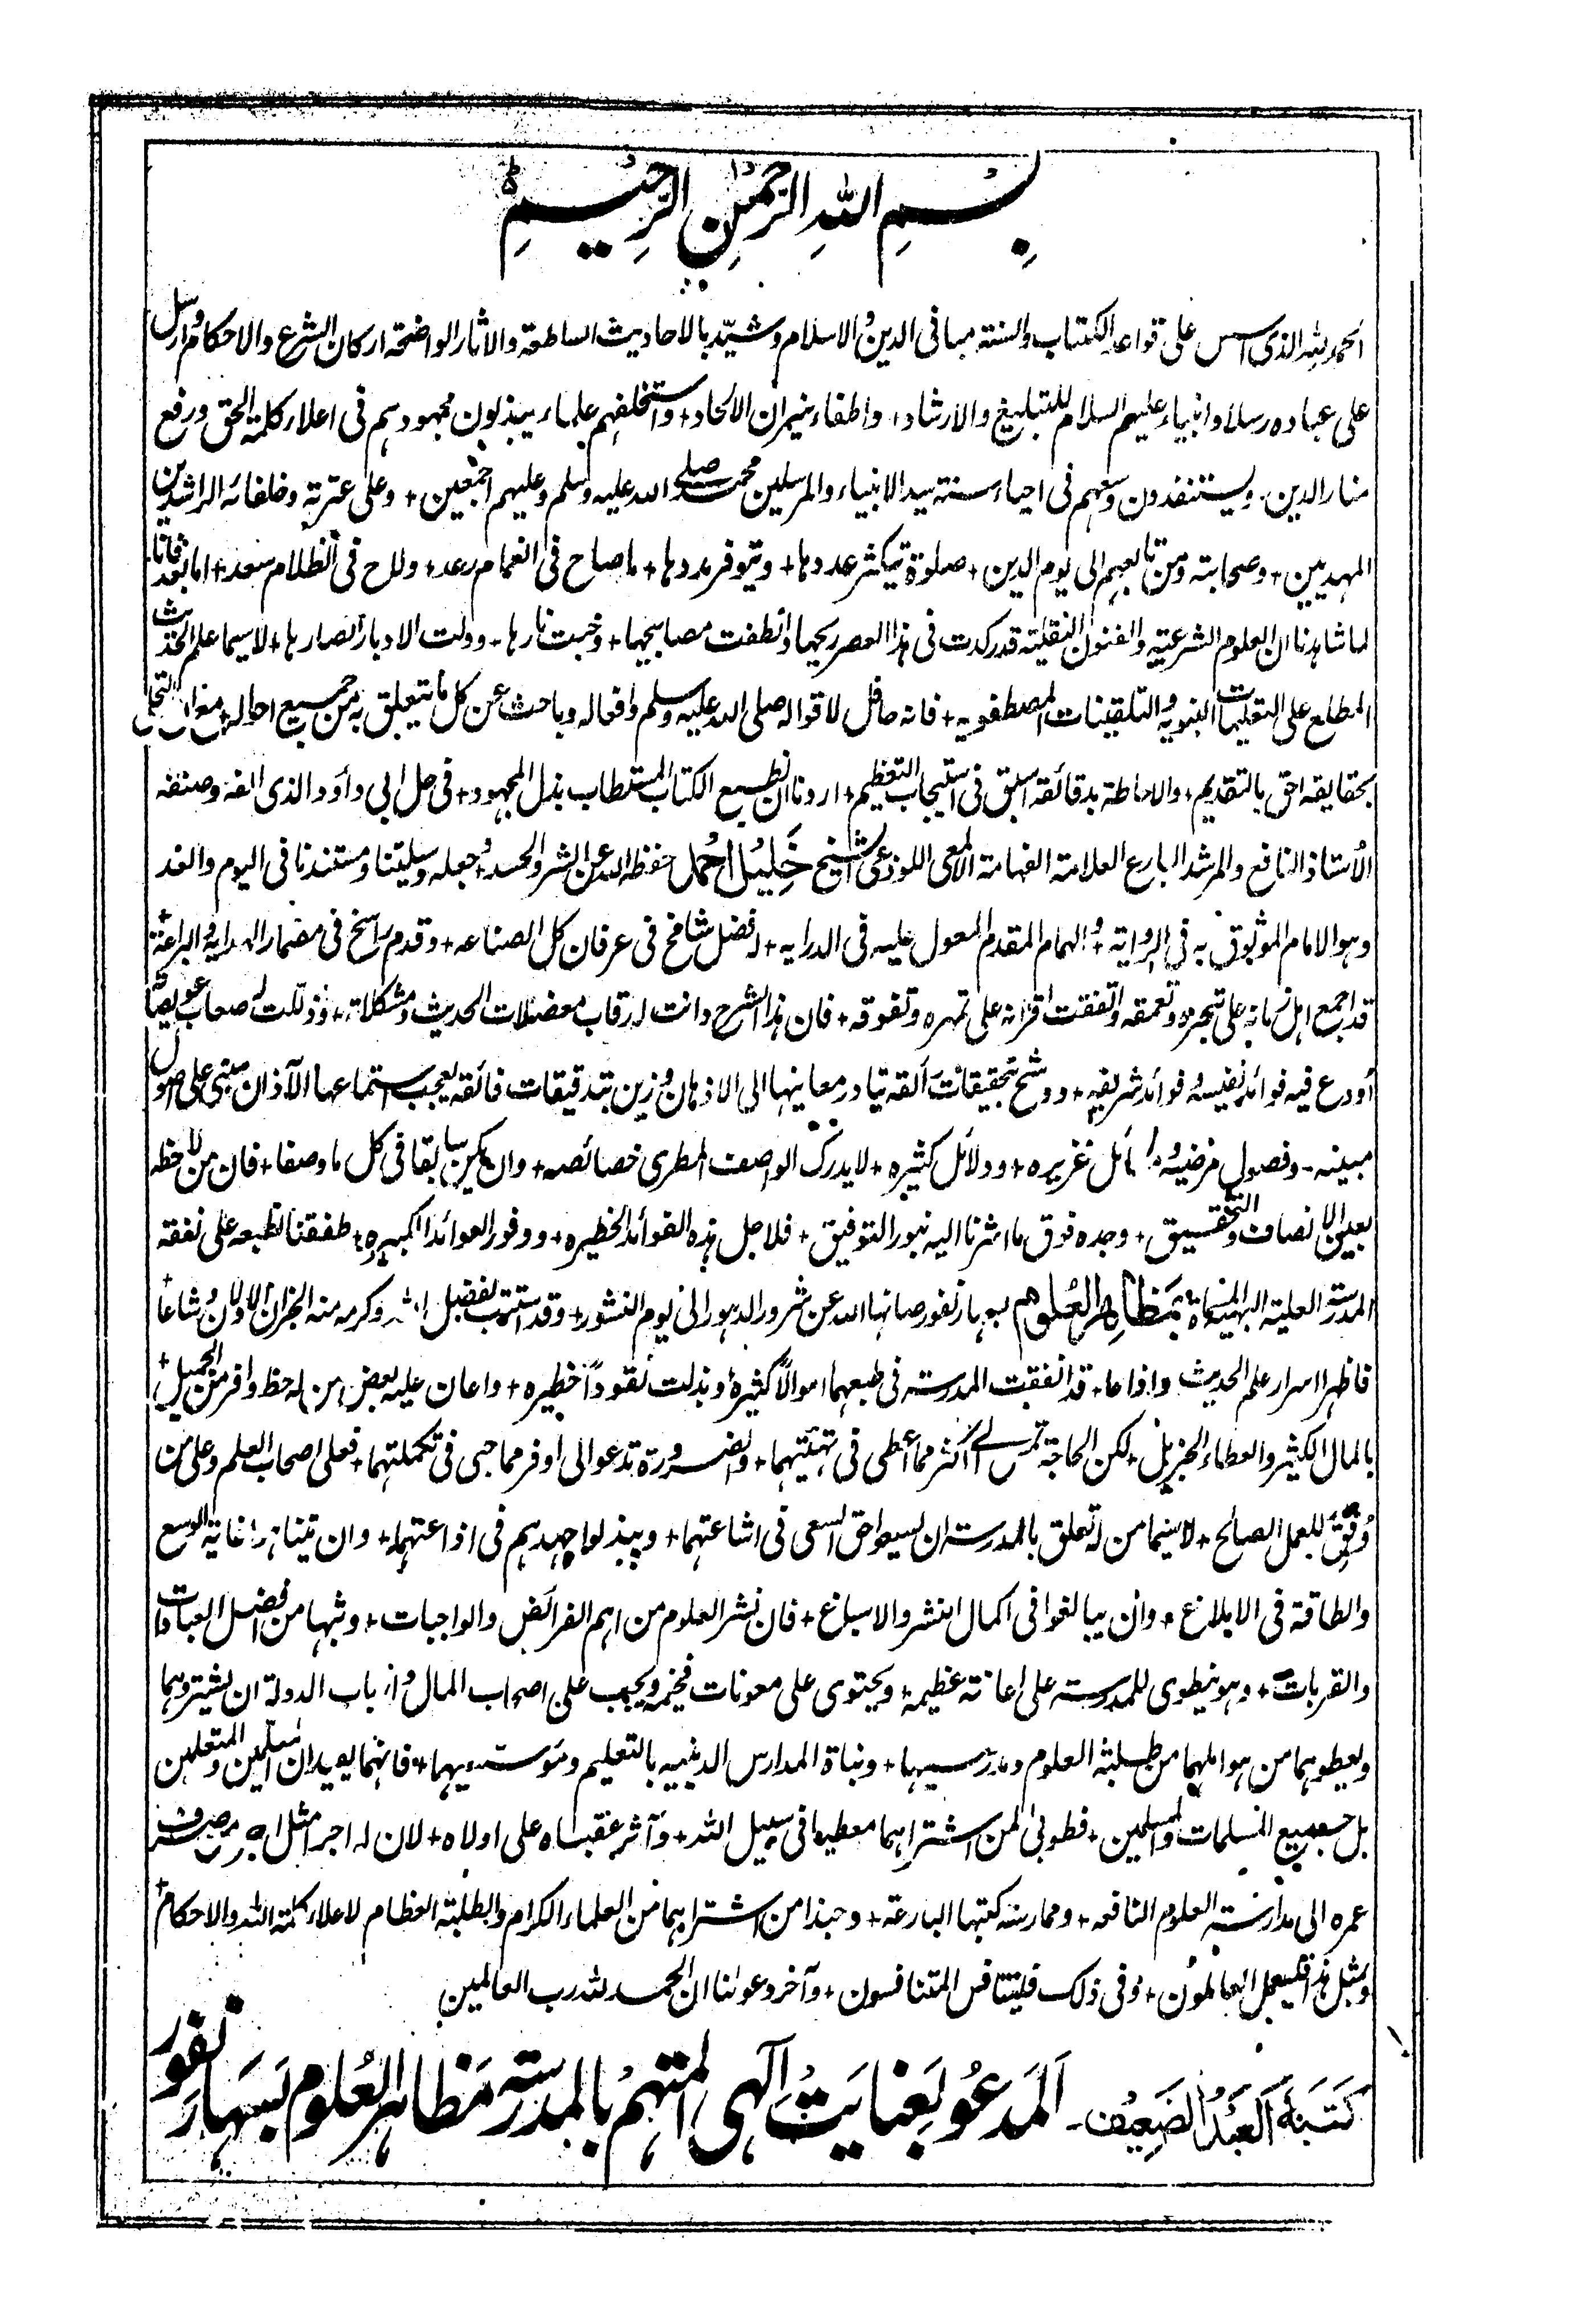 بِسْمِ اللهِ الرَّحْمٰنِ الرَّحِيْمِ
الحمد لله الذى اسس على قواعد الكتاب والسنة مبانى الدين والاسلام وشيّد بالاحاديث الساطعة والاثار الواضحة اركان الشرع والاحكام وارسل
على عباده رسلا وانبياء عليهم السلام للتبليغ والارشاد + واطفاء نيران الالحاد + واستخلفهم علماء يبذلون مجهودهم فى اعلاء كلمة الحق ورفع
منار الدين. ويستنفدون وسعهم فى احياء سنة سيد الانبياء والمرسلين محمد صلى الله عليه وسلم وعليهم اجمعين + وعلى عترته وخلفائه الراشدين
المهديين + وصحابته ومن تابعهم الى يوم الدين + صلوة تيكثر عددها + وتتوفر مددها + ماصاح فى الغمام رعد + وللاح فى الظلام سعد + اما بعد فانا
لما شاهدنا ان العلوم الشرعية والفنون النقلية قد ركدت فى هذا العصر ريحها وانطفت مصابيحها + وخبت نارها - وولت الادبار انصارها + لا سيما علم الحديث
المطلع على التعليمات النبوية والتلقينات المصطفوية + فانه حافل لاقواله صلى الله عليه وسلم وافعاله وباحث عن كل ما يتعلق به من جميع احواله
بحقايقه احق بالتقديم + والاحاطة بدقائقه اسبق فى استيجاب التعظيم + اردنا ان نطبع الكتاب المستطاب بذل المجهود + فى حل ابى داؤد الذى الفه وصنفه
الاستاذ النافع والمرشد البارع العلامة الفهامة الالمعى اللوذعى الشيخ خليل احمد حفظه الله عن الشر والحسد + جعله وسيلتنا ومستندنا فى اليوم والغد
وهو الامام الموثوق به فى الرواية + والهمام المقدم المعول عليه فى الدراية + له فضل شامخ فى عرفان كل الصناعه + وقدم راسخ فى مضمار الهداية والبراعة +
قد اجمع اهل زمانه على تبحره وتعمقه واتفقت اقرانه على تمهره وتفوقه + فان هذا الشرح دانت له رقاب معضلات الحديث ومشكلاته + وذللت له صعاب عويصاته
أودع فيه فوائد نفيسه فوائد شريفه + ووشح بتحقيقات انقه تبادر معاينها الى الاذهان وزين بتدقيقات فائقه يعجب استماعها الآذان مبنى على اصول
مبينه - وفصول مرضيه غزيره + ودلائل كثيره + لايدرك الواصف المطرى خصائصه + وان يكن سابقا فى كل ما وصفا + فان من لاحظه
بعين الانصاف والتحقيق + وجده فوق ما اشرنا اليه بنور التوفيق + فلاجل هذه الفوائد الخطيره + ووفور العوائد الكبيره + طفقنا لطبعه على نفقة
المدرسة العلية البهية المسماة بمظاهر العلوم بسهارنفور صانها الله عن شرور الدهور الى يوم النشور + وقد استتب بفضل الله وكرمه منه الجزان الاولان وشاعا +
فاظهرا اسرار علم الحديث واذاعا + قد انفقت المدرسة فى طبعهما اموالاً كثيرة وبذلت نقوداً خطيره + واعان عليه بعض من له حظ وافر من الجميل +
بالمال الكثير والعطاء الجزيل + لكن الحاجة تمس الى اكثر مما أعطى فى تهيئتهما + والضرورة تدعو الى اوفر مما جبى فى تكملتهما + فعلى اصحاب العلم وعلى من
وفق للعمل الصالح + لاسيما من له تعلق بالمدرسة ان يسعوا حق السعى فى اشاعتهما + ويبذلوا جهدهم فى اذاعتهما + وان غاية الوسع
والطاقة فى الابلاغ + وان يبالغوا فى اكمال النشر والاسباغ + فان نشر العلوم من اهم الفرائض والواجبات + وبثها من افضل العبادات
والقربات + وهو ينطوى للمدرسة على اعانة عظيمة + ويحتوى على معونات فخيمه ويجب على اصحاب المال وارباب الدولة ان يشتروهما
ويعطوهما من هو اهلهما من طلبة العلوم ومدرسيها + وبناة المدارس الدينيه بالتعليم ومؤسسيها + فانهما يفيدان المعلمين والمتعلمين
بل جميع المسلمات والمسلمين + فطوبى لمن اشتراهما معطيا فى سبيل الله + وآثر عقباه على اولاه + لان له اجرا مثل اجر من صرف
عمره الى مدارسة العلوم النافعة + وممارسة كتبها البارعة + وحبذا من اشتراهما من العلماء الكرام والطلبة العظام لاعلاء كلمة الله والاحكام +
ولمثل هذا فليعمل العاملون + وفى ذلك فليتنافس المتنافسون + وآخر دعوانا ان الحمد لله رب العالمين
كَتَبَهُ العَبْدُ الضَعِيْف - اَلمَدعُو بعنايت الٰهى المتهم بالمدرسة مظاهر العلوم بسهارنفور